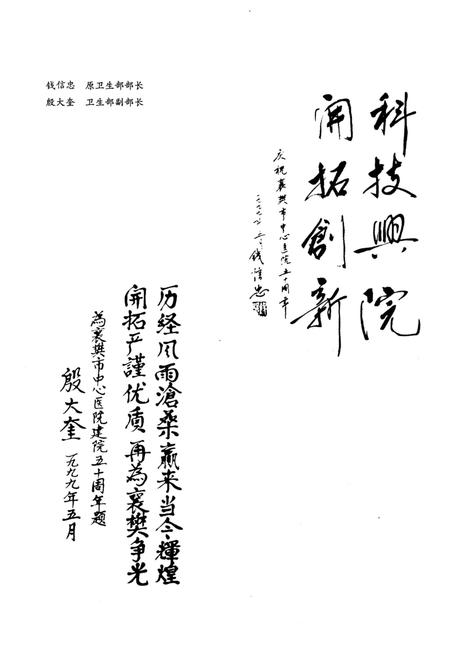 钱信忠　原卫生部部长
殷大奎　卫生部副部长
科技興院
開拓創新
庆祝襄樊市中心医院五十周年
钱信忠
历经风雨滄桑赢来当今輝煌
開拓严謹优质再為襄樊争光
為襄樊市中心医院建院五十周年题
殷大奎 一九九九年五月